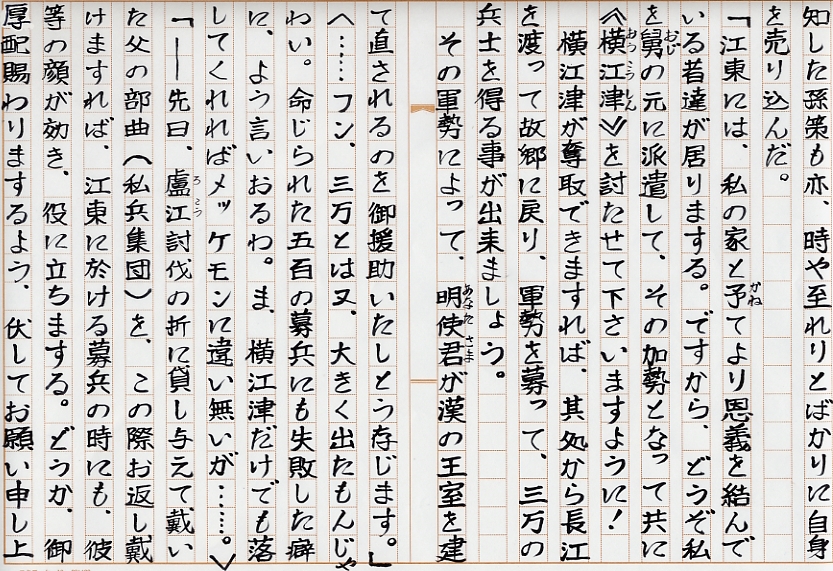 知した孫策も亦、時や至れりとばかりに自身
を売り込んだ。
「江東には、私の家と予てより恩義を結んで
いる者達が居りまする。ですから、どうぞ私
を舅の元に派遣して、その加勢となって共に
≪横江津≫を討たせて下さいますように！
横江津が奪取できますれば、其処から長江
を渡って故郷に戻り、軍勢を募って、三万の
兵士を得る事が出来ましょう。
その軍勢によって、明使君が漢の王室を建
て直されるのを御援助いたしとう存じます。」
へ……フン、三万とは又、大きく出たもんじゃ
わい。命じられた五百の募兵にも失敗した癖
に、よう言いおるわ。ま、横江津だけでも落
してくれればメッケモンに違い無いが……。＞
「——先日、盧江討伐の折に貸し与えて戴い
た父の部曲（私兵集団）を、この際お返し戴
けますれば、江東に於ける募兵の時にも、彼
等の顔が効き、役に立ちまする。どうか、御
厚配賜わりまするよう、伏してお願い申し上